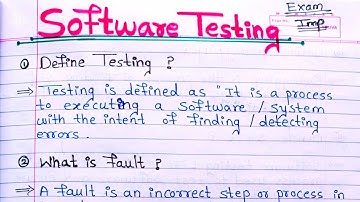 Software Testing
Exam
Imp
① Define Testing ?
⇒ Testing is defined as "It is a process
to executing a software / system
with the intent of finding / detecting
errors.
② What is fault ?
⇒ A fault is an incorrect step or process in